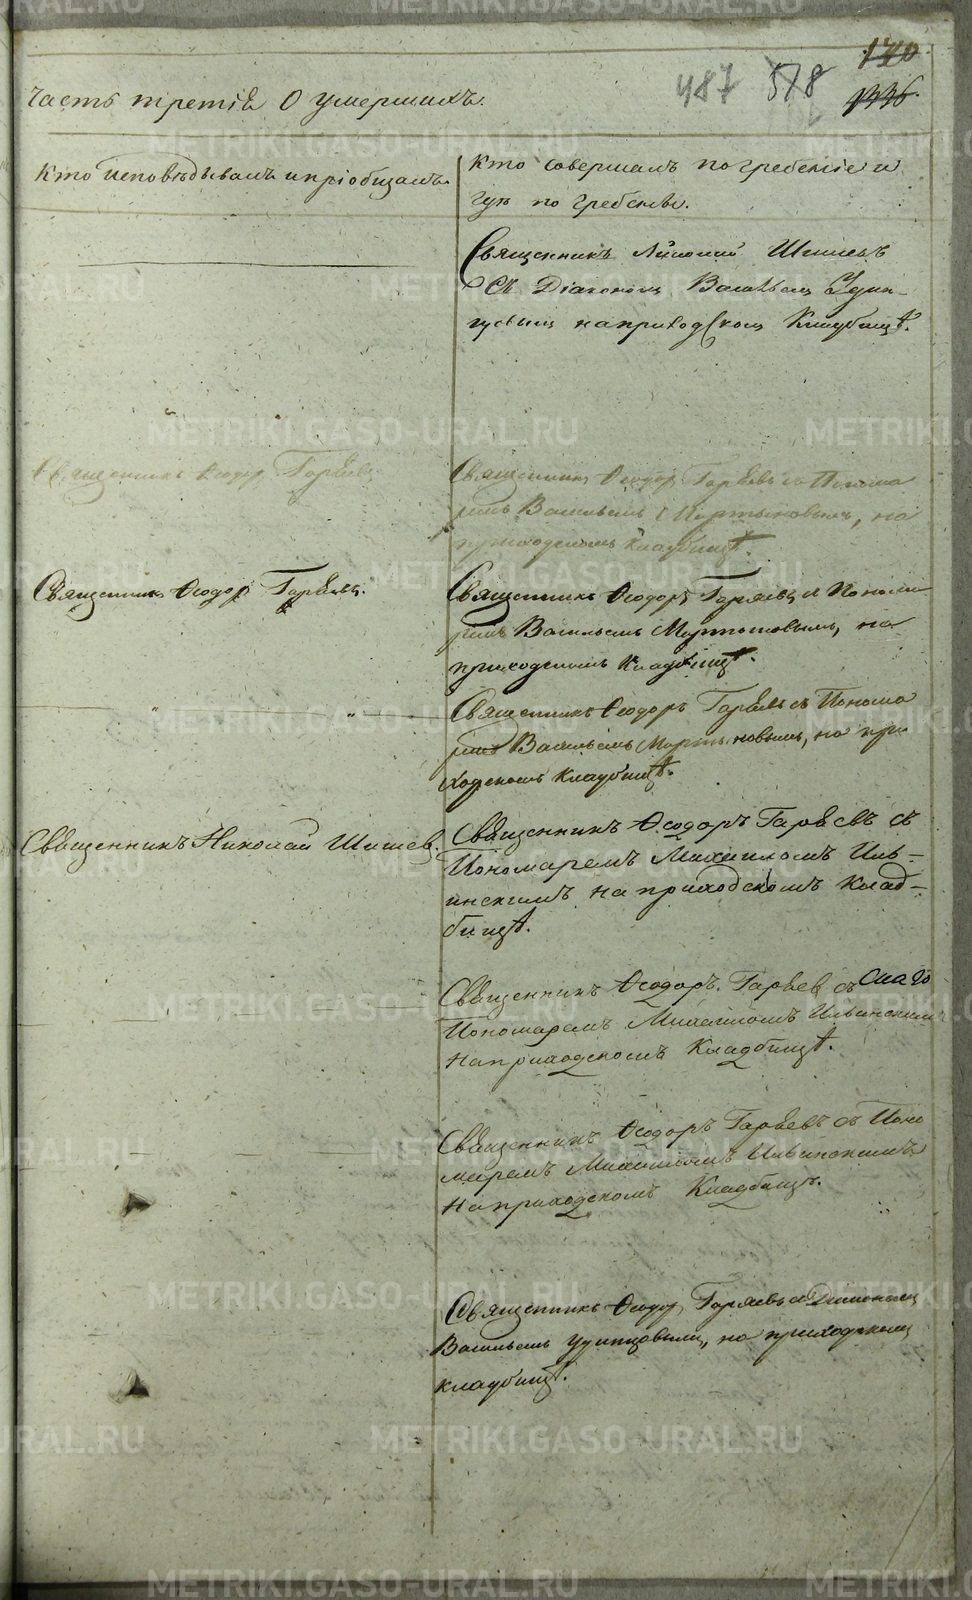 170
487 578 1336.
Часть третія О умершихъ.
Кто исповѣдывалъ и пріобщалъ.
Кто совершалъ погребеніе и
гдѣ погребены.
Священникъ Шишевъ
Съ Діакономъ Васильемъ Удин-
цовымъ на приходскомъ Кладбищѣ.
Священникъ Ѳеодоръ Гаряевъ
Священникъ Ѳеодоръ Гаряевъ съ Понома
ремъ Васильемъ Мартыновымъ, на
приходскомъ кладбищѣ.
Священникъ Ѳеодоръ Гаряевъ.
Священникъ Ѳеодоръ Гаряевъ съ Понома
ремъ Васильемъ Мартыновымъ, на
приходскомъ кладбищѣ.
" "
Священникъ Ѳеодоръ Гаряевъ съ Понома
ремъ Васильемъ Мартыновымъ, на при
ходскомъ кладбищѣ.
Священникъ Николай Шишев.
Священникъ Ѳеодоръ Гаряевъ съ
Пономаремъ Михаиломъ Иль-
инскимъ на приходскомъ клад-
бищѣ.
Священникъ Ѳеодоръ Гаряев съ
Пономаремъ Михаиломъ Ильинскимъ
на приходскомъ Кладбищѣ.
Священникъ Ѳеодоръ Гаряевъ съ Поно
маремъ Михаиломъ Ильинскимъ
на приходскомъ Кладбищѣ.
Священникъ Ѳеодоръ Гаряевъ съ Діакономъ
Васильемъ Удинцовымъ, на приходскомъ
кладбищѣ.
METRIKI.GASO-URAL.RU